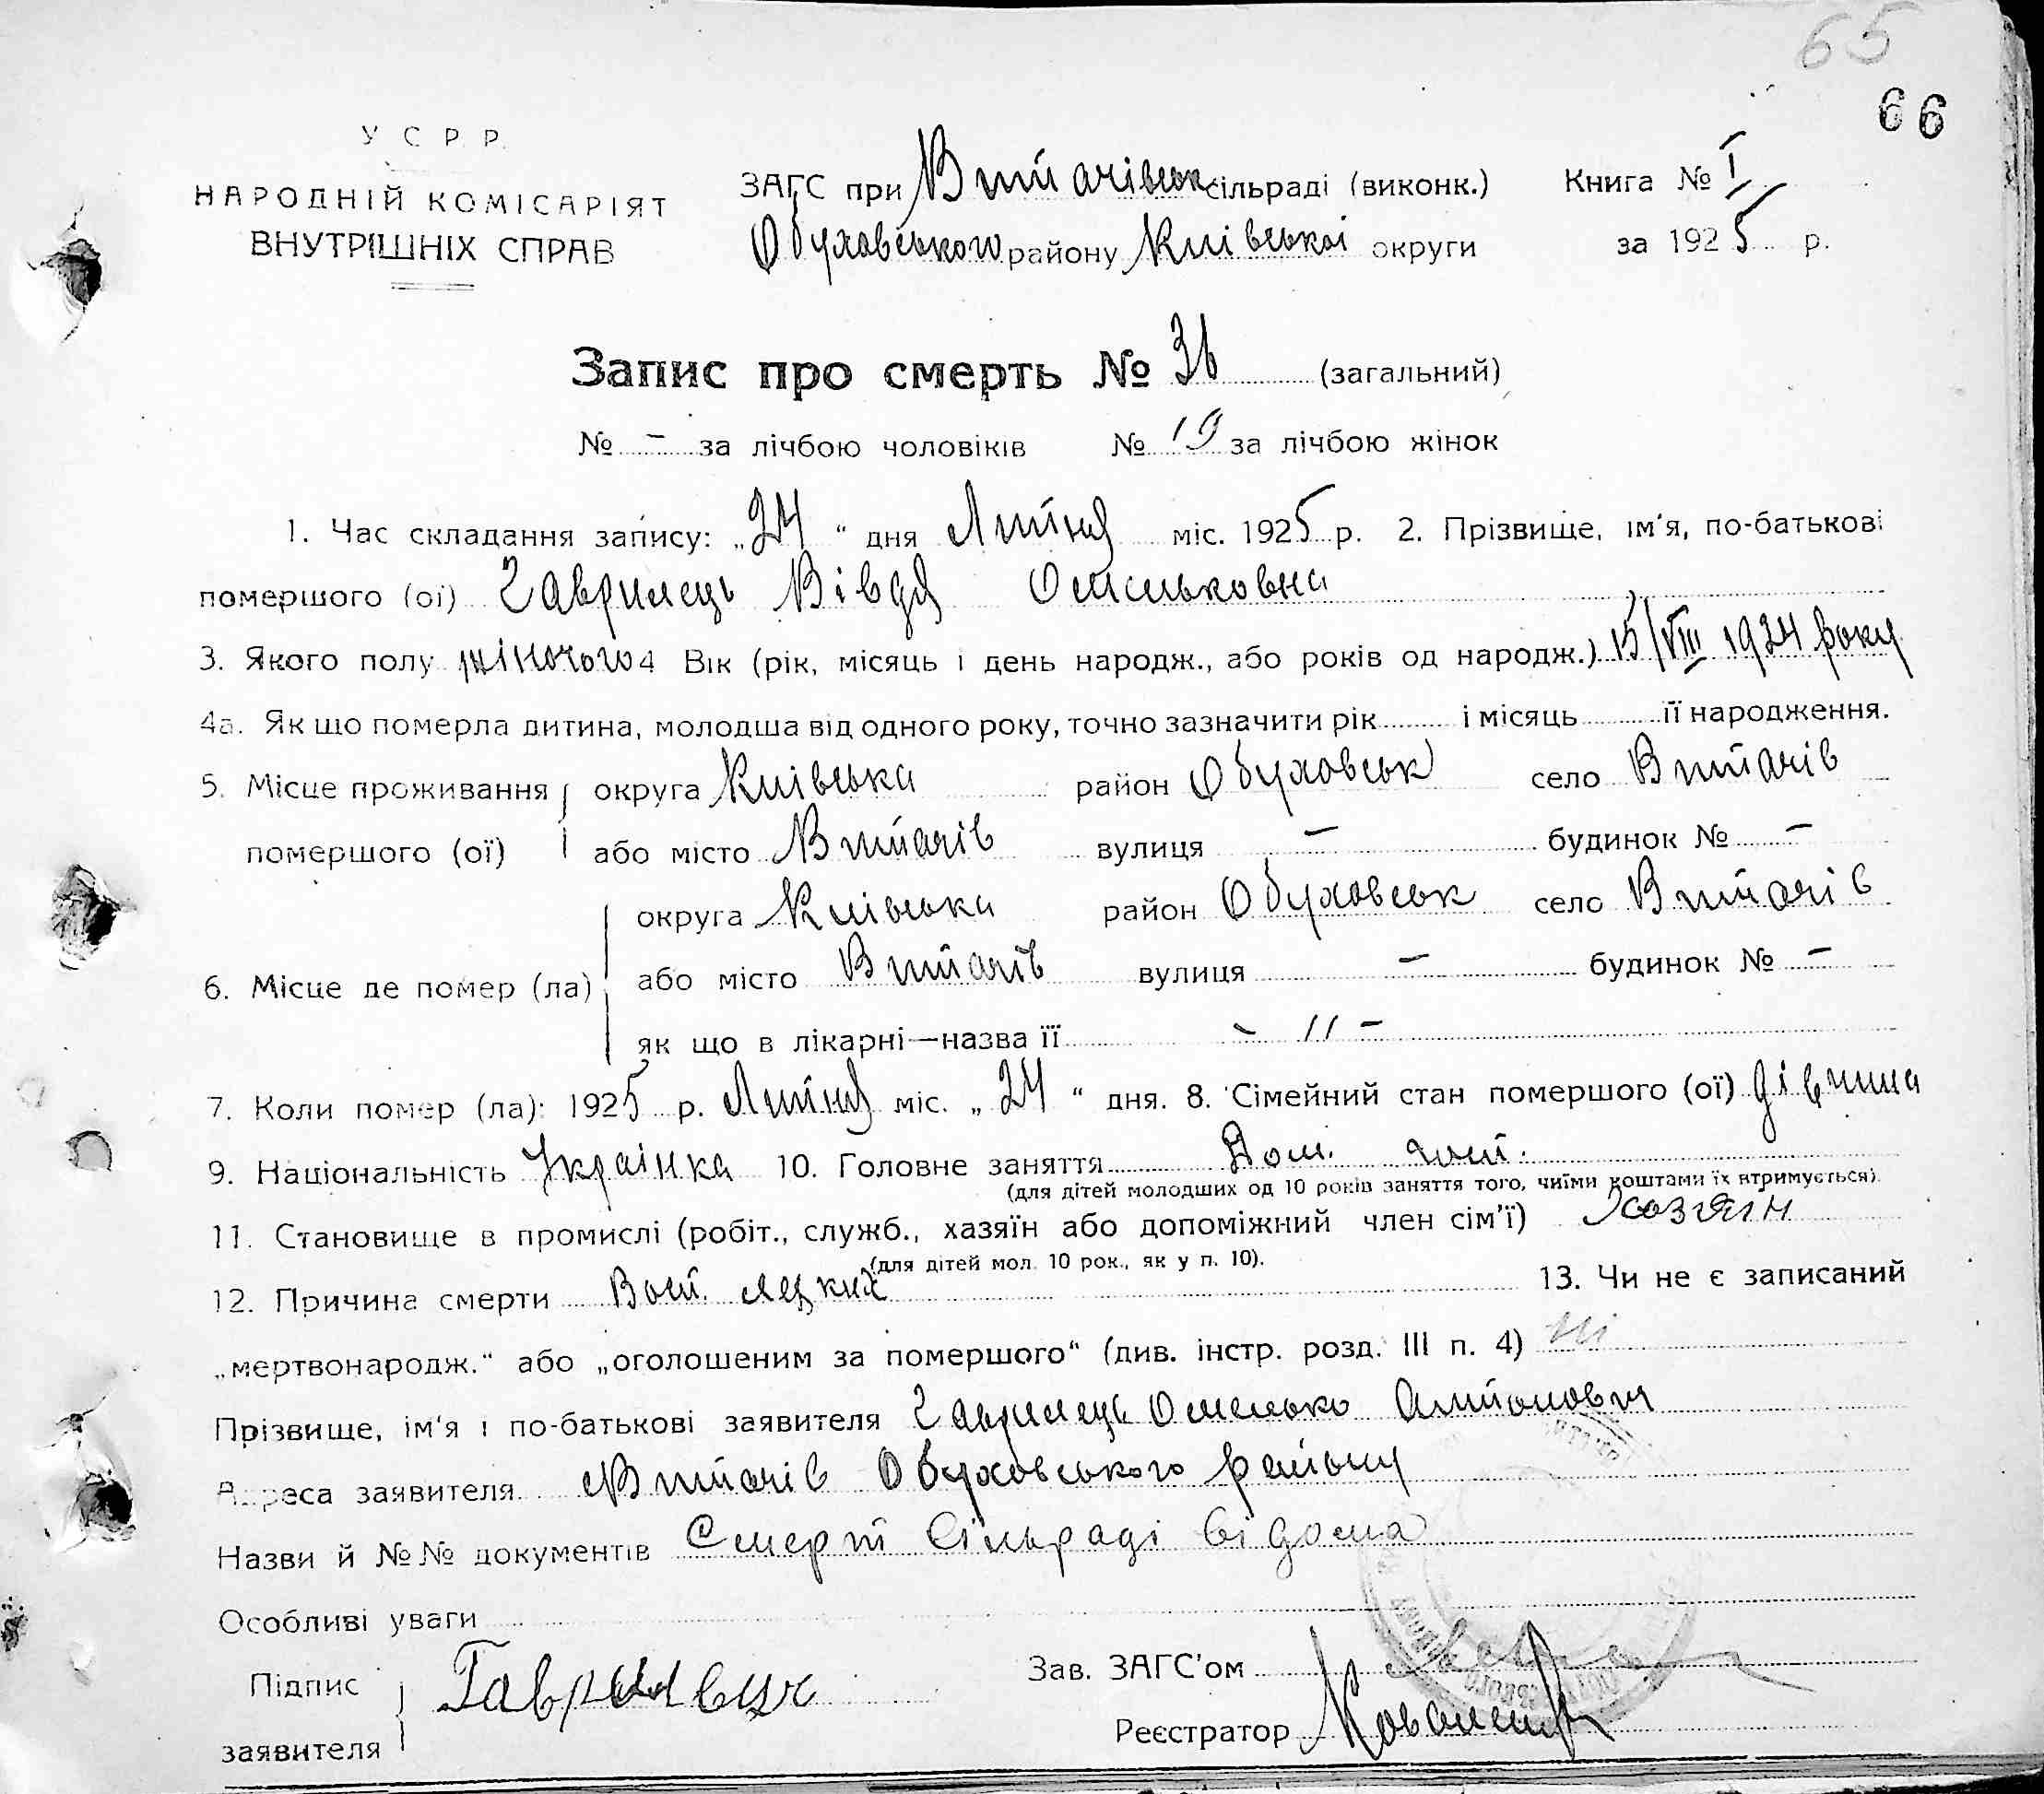 65
66
У С Р. Р.
НАРОДНІЙ КОМІСАРІЯТ
ВНУТРІШНІХ СПРАВ
ЗАГС при Витачівськ сільраді (виконк.)
Обухавського району Київської округи
Книга № I
за 1925 р.
Запис про смерть № 36 (загальний)
№ - за лічбою чоловіків № 19 за лічбою жінок
1. Час складання запису: „24“ дня Липня міс. 1925 р. 2. Прізвище, ім'я, по-батькові
помершого (ої) Гаврилець Вівдя Омельковна
3. Якого полу жіночого 4 Вік (рік, місяць і день народж., або років од народж.) 15/VIII 1924 року
4а. Як що померла дитина, молодша від одного року, точно зазначити рік і місяць її народження.
5. Місце проживання округа Київська район Обуховськ село Витачів
помершого (ої) або місто Витачів вулиця – будинок № –
округа Київська район Обуховськ село Витачів
6. Місце де помер (ла) або місто Витачів вулиця – будинок № –
як що в лікарні—назва її – 〃 –
7. Коли помер (ла): 1925 р. Липня міс. „24“ дня. 8. Сімейний стан помершого (ої) дівчина
9. Національність Українка 10. Головне заняття Дом.
(для дітей молодших од 10 років заняття того, чиїми коштами їх втримується).
11. Становище в промислі (робіт., служб., хазяїн або допоміжний член сім'ї) Хозяін
(для дітей мол. 10 рок., як у п. 10).
12. Причина смерти 13. Чи не є записаний
„мертвонародж.“ або „оголошеним за помершого“ (див. інстр. розд. III п. 4) ні
Прізвище, ім'я і по-батькові заявителя Гаврилець Омелько Антонович
Адреса заявителя Витачів Обуховського району
Назви й №№ документів Смерт Сільраді відома
Особливі уваги
Підпис
заявителя Гаврилець
Зав. ЗАГС'ом
Реєстратор Коваленко